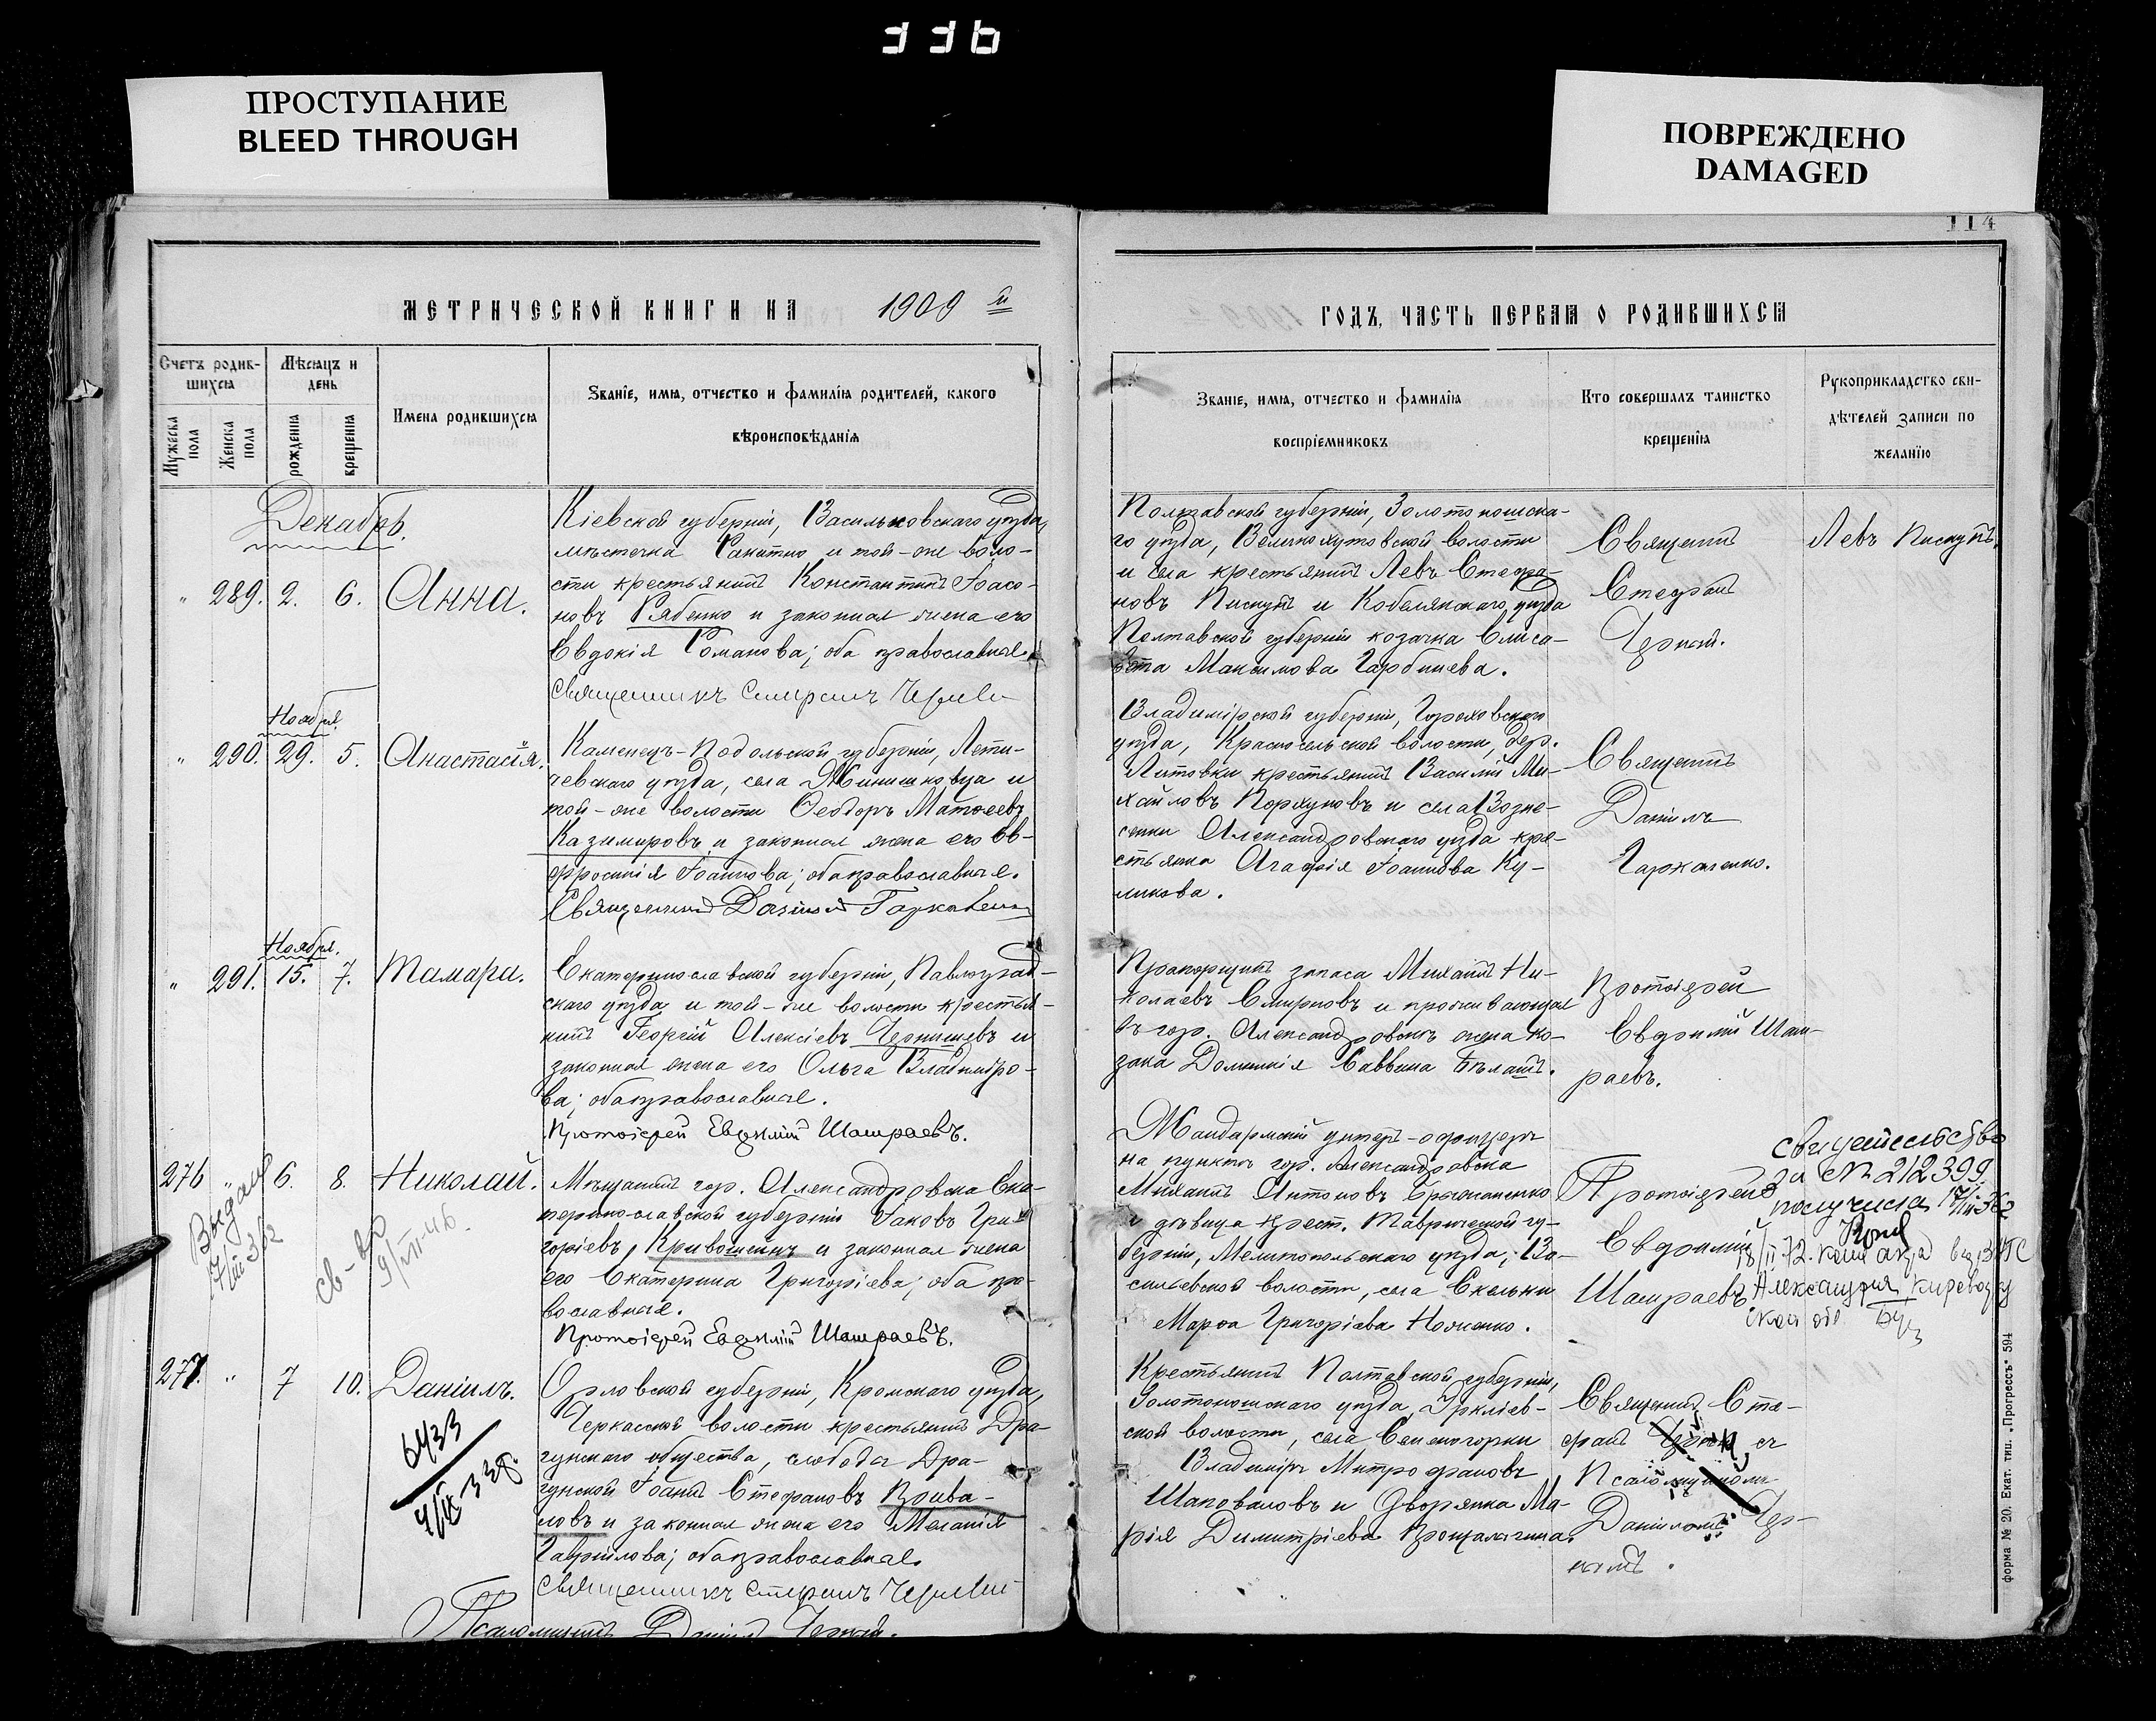 336
ПРОСТУПАНИЕ
BLEED THROUGH
ПОВРЕЖДЕНО
DAMAGED
114
МЕТРИЧЕСКОЙ КНИГИ НА 1909 й
ГОДЪ, ЧАСТЬ ПЕРВАЯ О РОДИВШИХСЯ
Счетъ родив-
шихся
Мужеска
пола
Женска
пола
Мѣсяцъ и
день
рожденія
крещенія
Имена родившихся
Званіе, имя, отчество и фамилія родителей, какого
вѣроисповѣданія
Званіе, имя, отчество и фамилія
воспріемниковъ
Кто совершалъ таинство
крещенія
Рукоприкладство сви-
дѣтелей записи по
желанію
Декабрь.
" 289. 2. 6. Анна.
Кіевской губерніи, Васильковскаго уѣзда,
мѣстечка Ракитно и той-же воло-
сти крестьянинъ Константинъ Іоасо-
новъ Рябенко и законная жена его
Евдокія Романова; оба православные.
Священникъ Стефанъ Черный
Полтавской губерніи, Золотоношска-
го уѣзда, Великохутовской волости
и села крестьянинъ Левъ Стефа-
новъ Пискунъ и Кобелякскаго уѣзда
Полтавской губерніи козачка Елиса-
вета Максимова Гарбишева.
Священникъ
Стефанъ
Черный.
Левъ Пискунъ.
Ноября.
" 290. 29. 5. Анастасія.
Каменецъ-Подольской губерніи, Лети-
чевскаго уѣзда, села Жинишковца и
той-же волости Ѳеодоръ Матѳеевъ
Казимировъ и законная жена его Ев-
фросинія Іоаннова; оба православные.
Священникъ Даніилъ Гаркавенко
Владимірской губерніи, Гороховскаго
уѣзда, Красносельской волости, дер.
Литовки крестьянинъ Василій Ми-
хайловъ Порхуновъ и села Возне-
сенки Александровскаго уѣзда кре-
стьянка Агафія Іоаннова Ку-
ликова.
Священникъ
Даніилъ
Гаркавенко.
Ноября.
" 291. 15. 7. Тамара.
Екатеринославской губерніи, Павлоград-
скаго уѣзда и той-же волости крестья-
нинъ Георгій Алексіевъ Чернышевъ и
законная жена его Ольга Владиміро-
ва; оба православные.
Протоіерей Евфимій Шашраевъ.
Прапорщикъ запаса Михаилъ Ни-
колаевъ Смирновъ и проживающая
въ гор. Александровскѣ жена ко-
зака Домникія Саввина Бѣлашъ.
Протоіерей
Евфимій Шаш-
раевъ.
276 " 6. 8. Николай.
Выданъ
7/III 36
св-во
9/VII-46.
Мѣщанинъ гор. Александровска Ека-
теринославской губерніи Іаковъ Гри-
горіевъ Кривошеинъ и законная жена
его Екатерина Григоріева; оба пра-
вославные.
Протоіерей Евфимій Шашраевъ.
Жандармскій унтеръ-офицеръ
на пунктѣ гор. Александровска
Михаилъ Антоновъ Брижаненко
и дѣвица крест. Таврической гу-
берніи, Мелитопольскаго уѣзда, Ва-
сильевской волости, села Скельки
Марѳа Григоріева Ноженко.
Протоіерей
Евфимій
Шашраевъ
свидетельство
за № 212399
получила
277. " 7 10. Даніилъ.
6433
Орловской губерніи, Кромскаго уѣзда,
Черкасской волости крестьянинъ Дра-
гунскаго общества, слободы Дра-
гунской Іоаннъ Стефановъ Прива-
ловъ и законная жена его Меланія
Гавріилова; оба православные.
Священникъ Стефанъ Черный
Псаломщикъ Даніилъ Черный.
Крестьянинъ Полтавской губерніи,
Золотоношскаго уѣзда, Ирклiев-
ской волости, села Сененогорки
Владиміръ Митрофановъ
Шаповаловъ и Дворянка Ма-
рія Димитріева Прощалагина.
Священникъ Сте-
фанъ Черный съ
Псаломщикомъ
Даніиломъ Чер-
нымъ.
форма № 20. Екат. тип. „Прогрессъ" 594